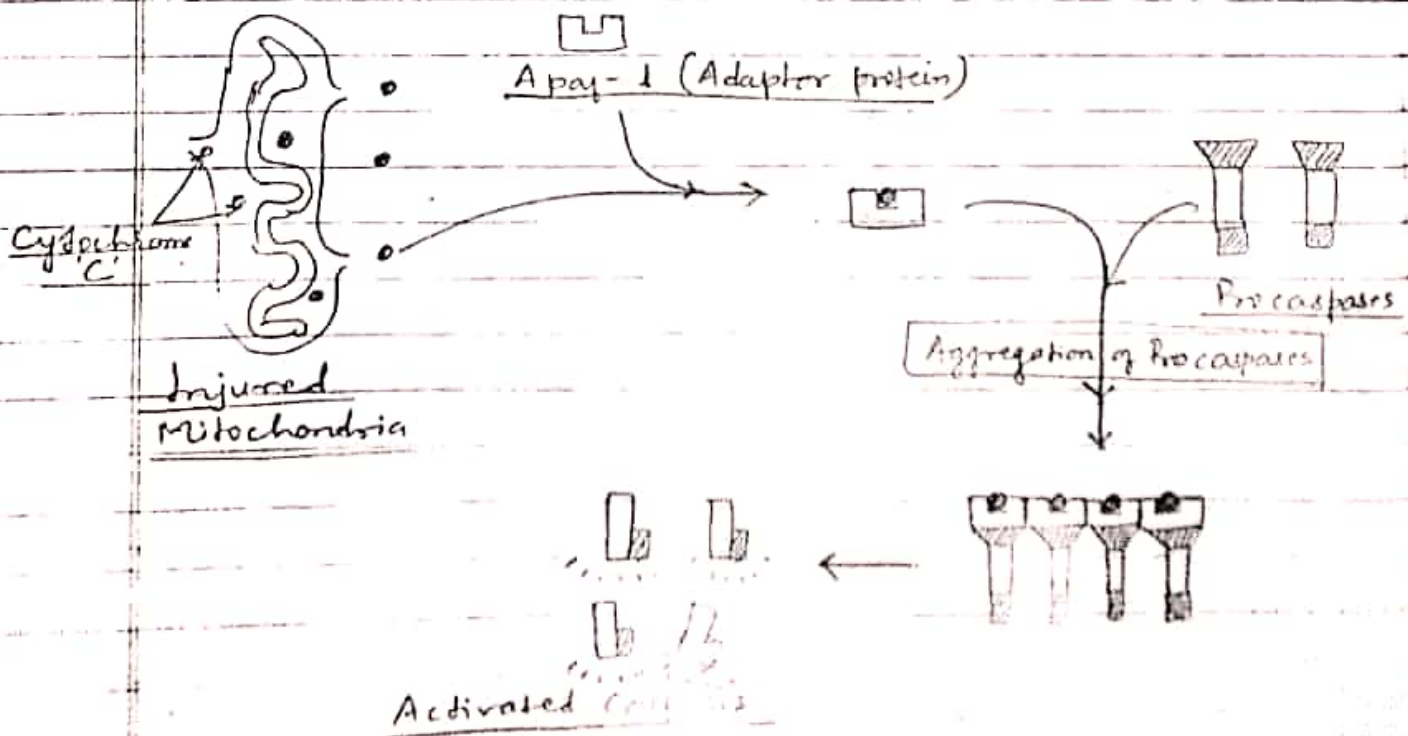 Apaf-1 (Adapter protein)
Cytochrome
'C'
Procaspases
Aggregation of Procaspases
Injured
Mitochondria
Activated